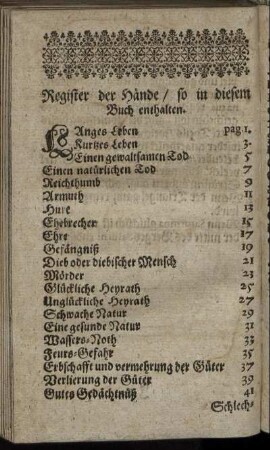 Register der Hände / so in diesem
Buch enthalten.
LAnges Leben pag 1.
Kurtzes Leben 3.
Einen gewaltsamen Tod 5
Einen natürlichen Tod 7
Reichthumb 9
Armuth 11
Hure 13
Ehebrecher 15
Ehre 17
Gefängniß 19
Dieb oder diebischer Mensch 21
Mörder 23
Glückliche Heyrath 25
Unglückliche Heyrath 27
Schwache Natur 29
Eine gesunde Natur 31
Wassers-Noth 33
Feurs-Gefahr 35
Erbschafft und vermehrung der Güter 37
Verlierung der Güter 39
Gutes Gedächtnüß 41
Schlech-